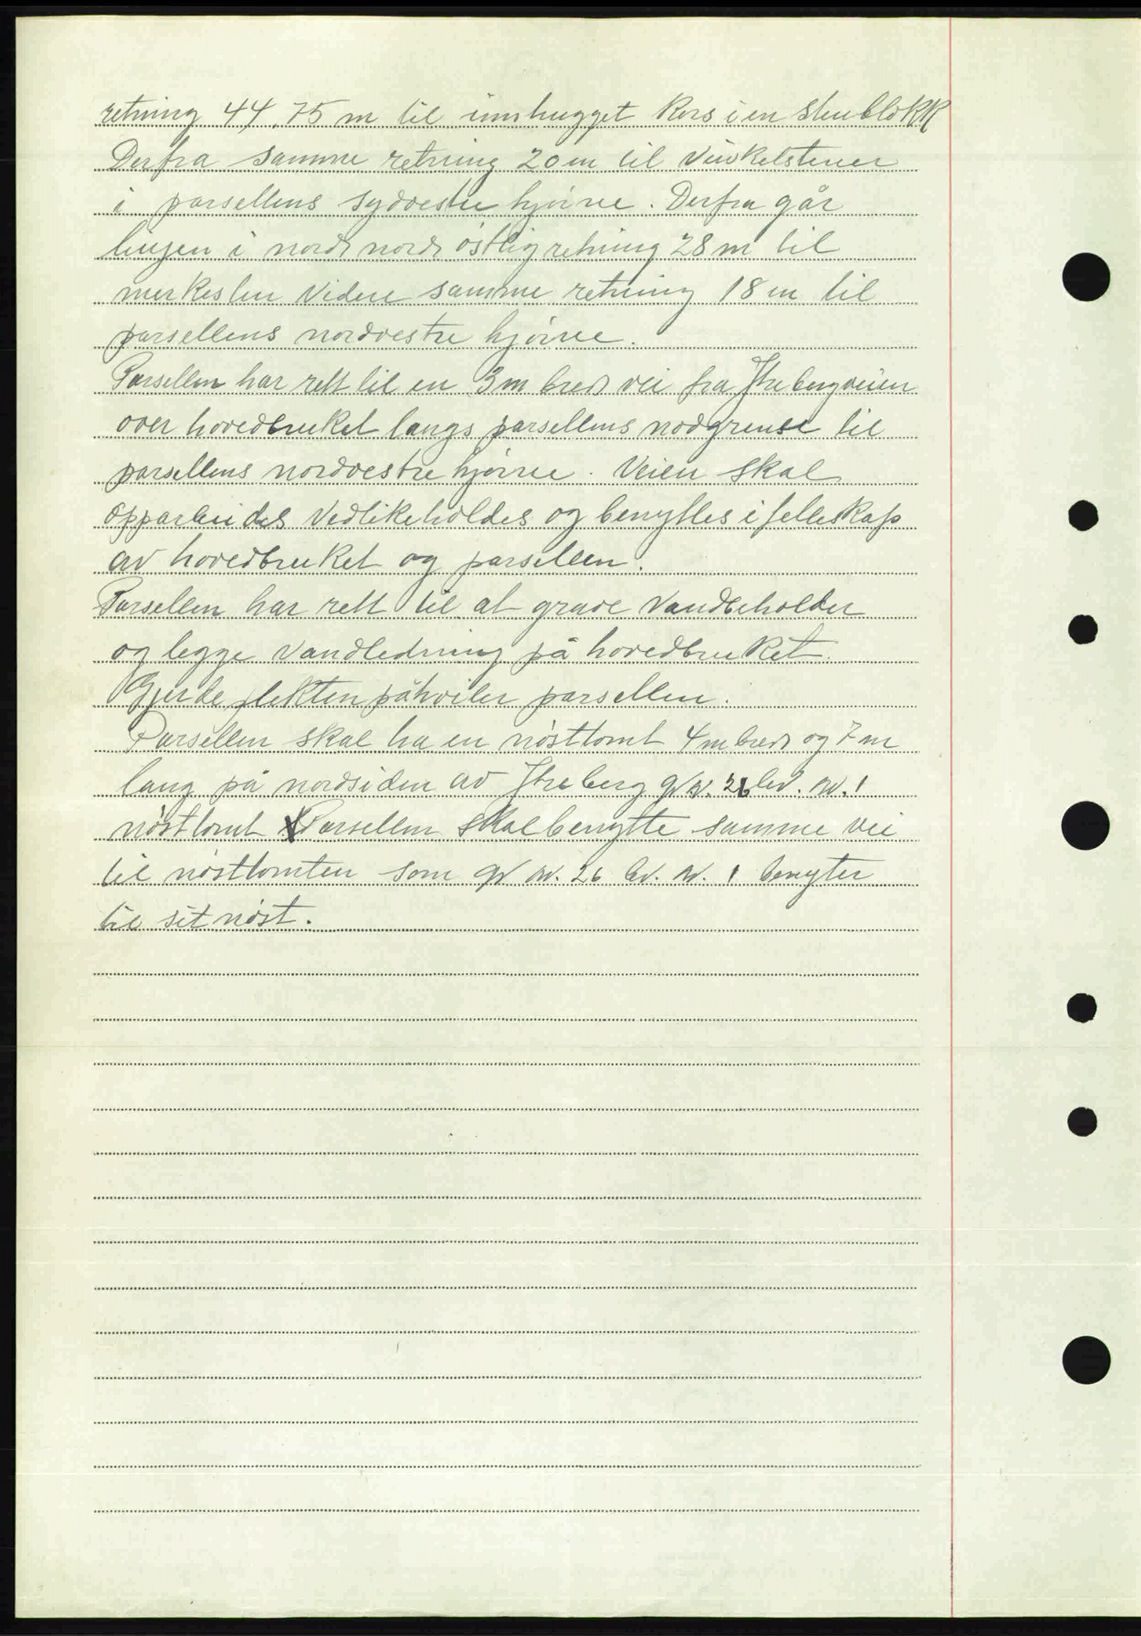 retning 44,75 m til innhugget Kors i en stenblokk
Derfra samme retning 20 m til Vinkelstenen
i parsellens sydvestre hjörne. Derfra går
linjen i nord nord östlig retning 28 m til
merkesten Videre samme retning 18 m til
parsellens nordvestre hjörne.
Parsellen har rett til en 3 m bred vei fra Strebergveien
over hovedbruket langs parsellens nodgrense til
parsellens nordvestre hjörne. Veien skal
opparbeides Vedlikeholdes og benyttes i felleskap
av hovedbruket og parsellen.
Parsellen har rett til at grave Vandbeholder
og legge Vandledning på hovedbruket.
Gjerdeplikten påhviler parsellen.
Parsellen skal ha en nösttomt 4 m bred og 7 m
lang på nordsiden av Streberg gr. nr. 26 br. nr. 1
nösttomt Parsellen skal benytte samme vei
til nösttomten som gr nr. 26 br. nr. 1 benyter
til sit nöst.